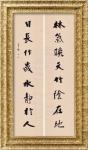 林氣映天竹陰在地
日長作歲水靜於人